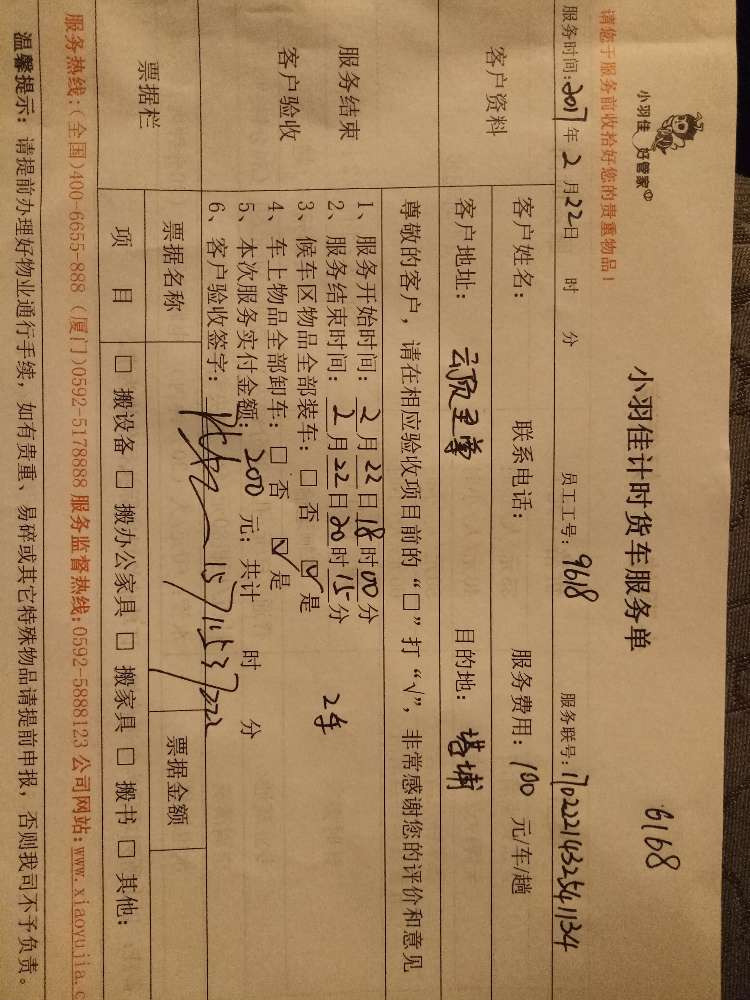 小羽佳 好管家
小羽佳计时货车服务单
6168
请您于服务前收拾好您的贵重物品!
服务时间:2017年2月22日 时 分 员工工号:9618 服务联号:1702221432541134
客户资料
客户姓名: 联系电话: 服务费用:100元/车/趟
客户地址: 目的地:塔埔
服务结束
客户验收
尊敬的客户,请在相应验收项目前的“□”打“√”,非常感谢您的评价和意见
1、服务开始时间:2月22日18时00分
2、服务结束时间:2月22日20时15分
3、候车区物品全部装车:□ 否 ☑ 是 2车
4、车上物品全部卸车:□ 否 ☑ 是
5、本次服务实付金额:200元;共计 时 分
6、客户验收签字:
票据栏
票据名称 票据金额
项 目 □ 搬设备 □ 搬办公家具 □ 搬家具 □ 搬书 □ 其他:
服务热线:(全国)400-6655-888 (厦门)0592-5178888 服务监督热线:0592-5888123 公司网站:www.xiaoyujia.c
温馨提示:请提前办理好物业通行手续,如有贵重、易碎或其它特殊物品请提前申报,否则我司不予负责。